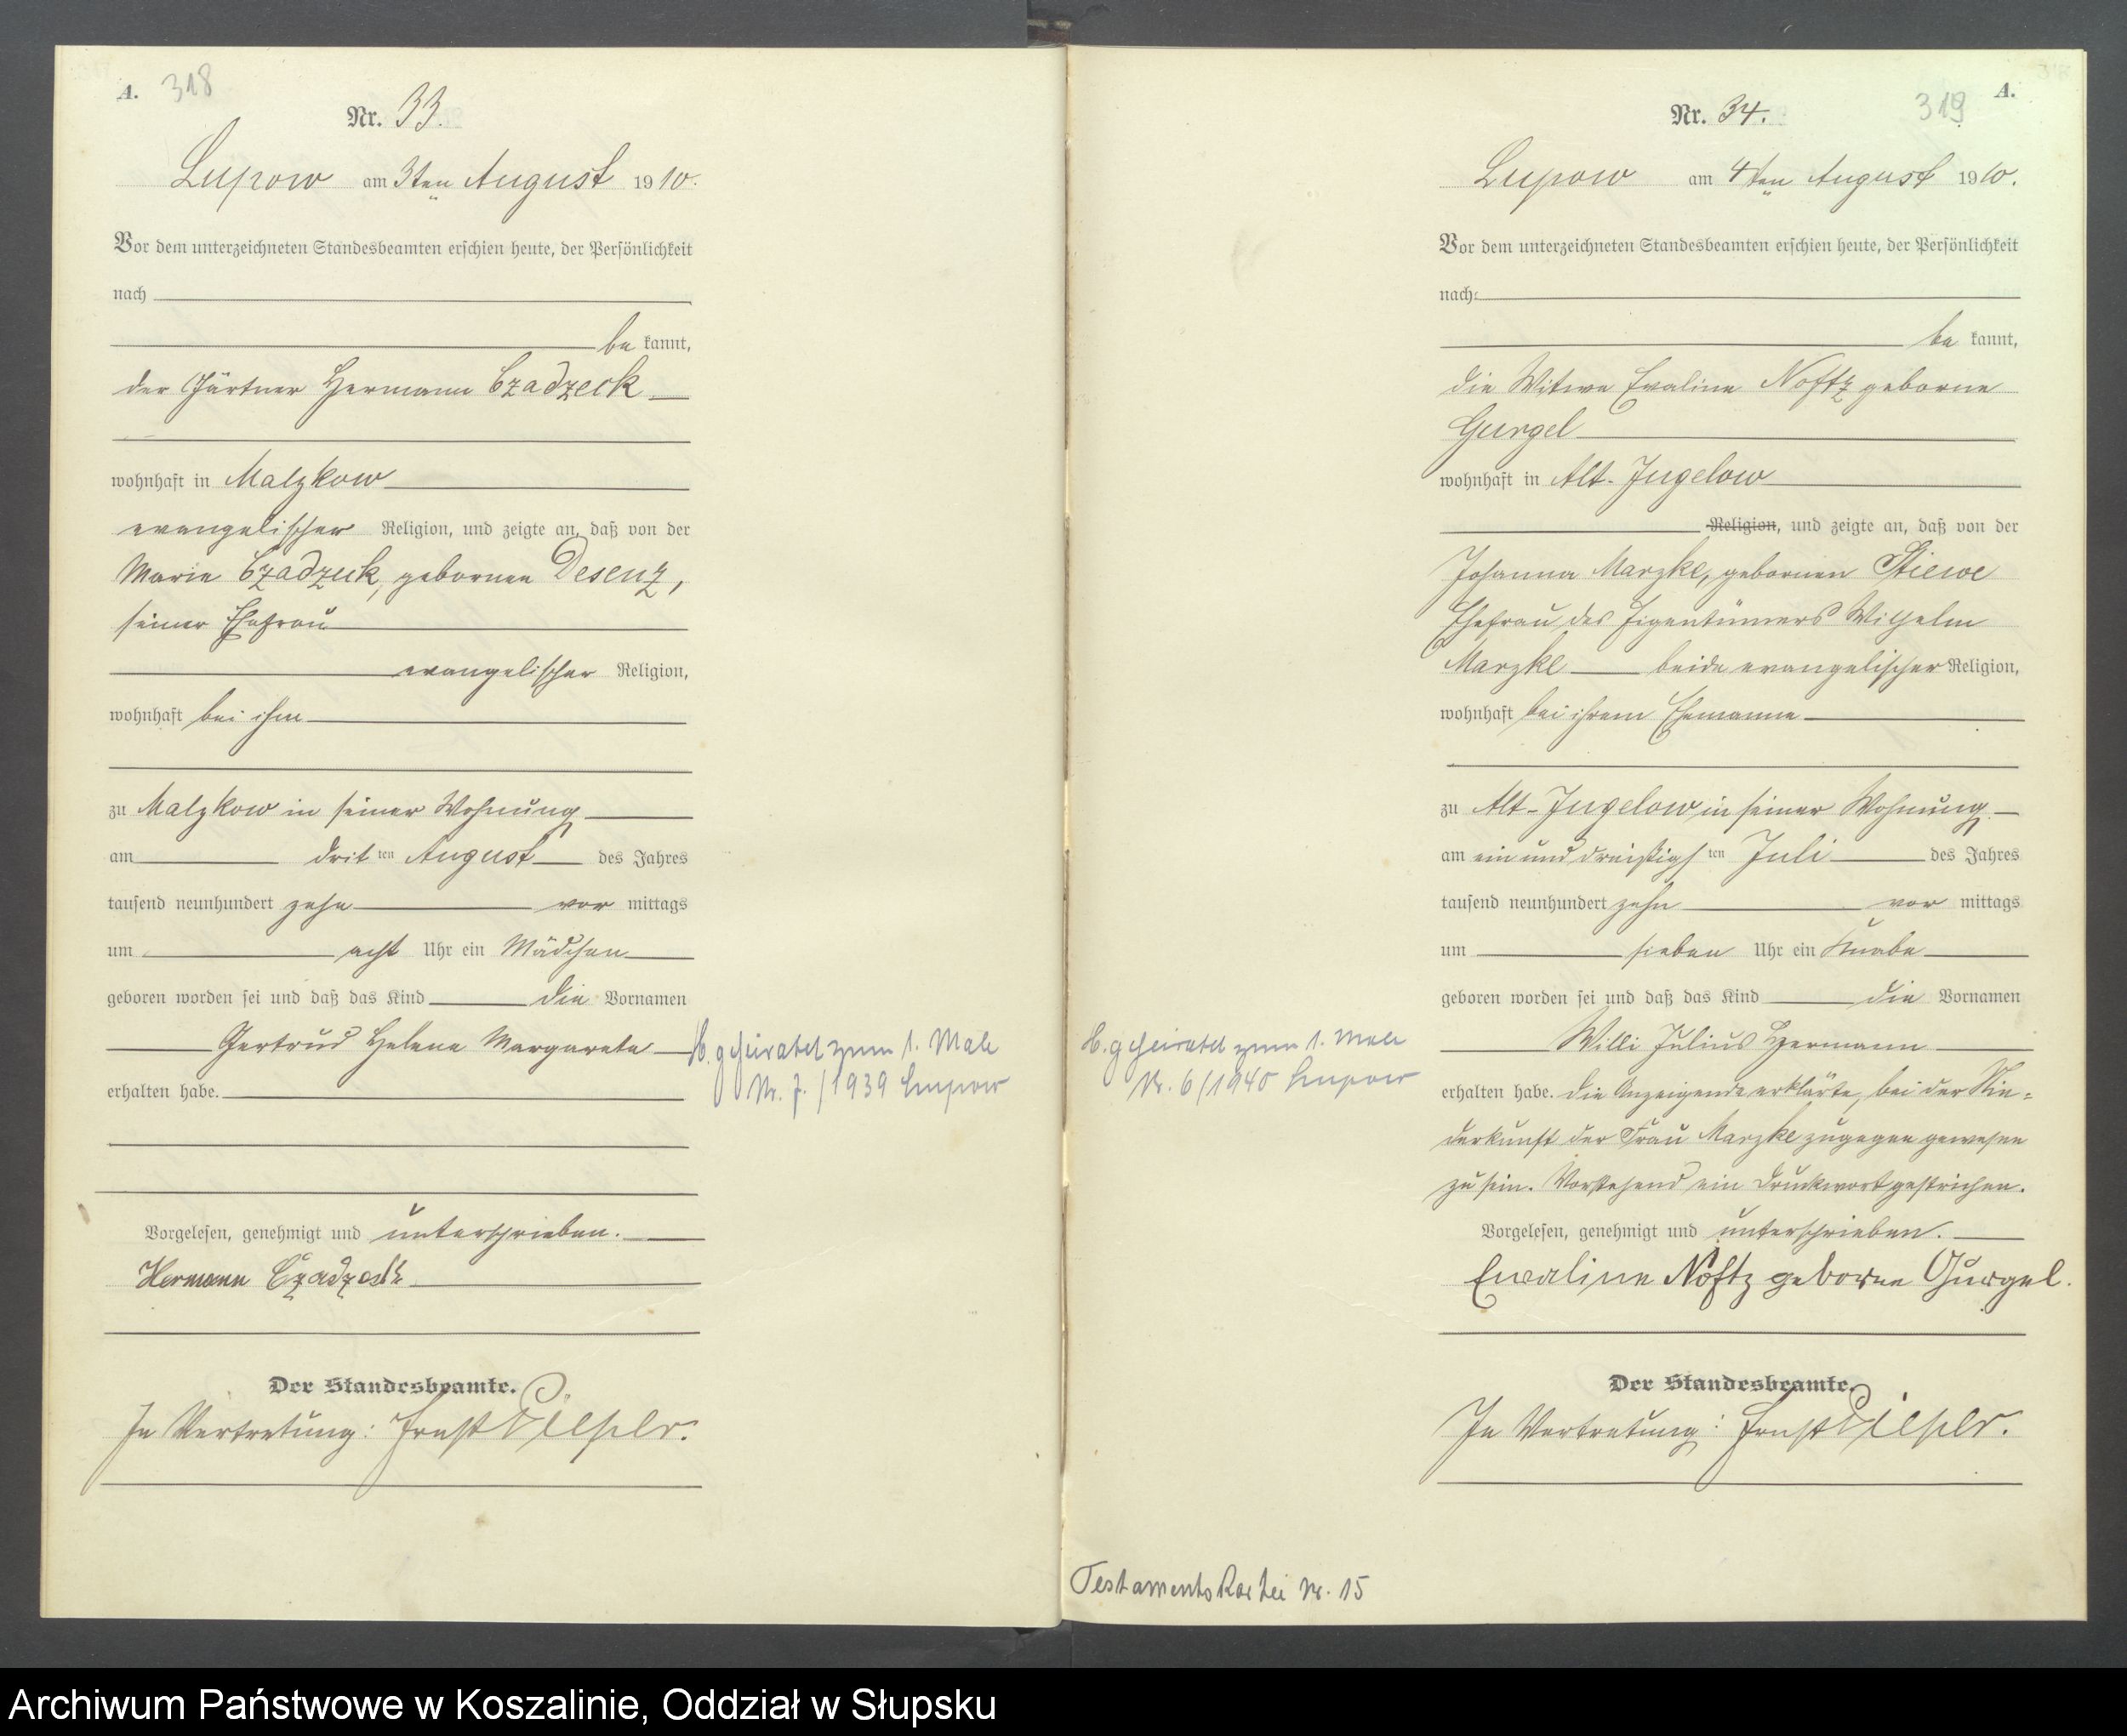 A. 318
Nr. 33.
Lupow am 3ten August 1910.
Vor dem unterzeichneten Standesbeamten erschien heute, der Persönlichkeit
nach
be kannt,
der Gärtner Hermann Czadzeck
wohnhaft in Malzkow
evangelischer Religion, und zeigte an, daß von der
Marie Czadzeck, gebornen Desenz,
seiner Ehefrau
evangelischer Religion,
wohnhaft bei ihm
zu Malzkow in seiner Wohnung
am drit ten August des Jahres
tausend neunhundert zehn vor mittags
um acht Uhr ein Mädchen
geboren worden sei und daß das Kind die Vornamen
Gertrud Helene Margarete
erhalten habe.
Vorgelesen, genehmigt und unterschrieben.
Hermann Czadzeck
Der Standesbeamte.
In Vertretung: Ernst
H. geheiratet zum 1. Male
Nr. 7. / 1939 Lupow
A.
319
Nr. 34.
Lupow am 4ten August 1910.
Vor dem unterzeichneten Standesbeamten erschien heute, der Persönlichkeit
nach
be kannt,
die Witwe Evaline Noftz geborne
Gurgel
wohnhaft in Alt-Jugelow
Religion, und zeigte an, daß von der
Johanna Marzke, gebornen Stiewe
Ehefrau des Eigentümers Wilhelm
Marzke beide evangelischer Religion,
wohnhaft bei ihrem Ehemanne
zu Alt-Jugelow in seiner Wohnung
am ein und dreißigs ten Juli des Jahres
tausend neunhundert zehn vor mittags
um sieben Uhr ein Knabe
geboren worden sei und daß das Kind die Vornamen
Willi Julius Hermann
erhalten habe. Die Anzeigende erklärte, bei der Nie=
derkunft der Frau Marzke zugegen gewesen
zu sein. Vorstehend ein Druckwort gestrichen.
Vorgelesen, genehmigt und unterschrieben.
Ewaline Noftz geborne Gurgel.
Der Standesbeamte.
In Vertretung: Ernst
H. geheiratet zum 1. Male
Nr. 6/1940 Lupow
Testaments Kartei Nr. 15
Archiwum Państwowe w Koszalinie, Oddział w Słupsku